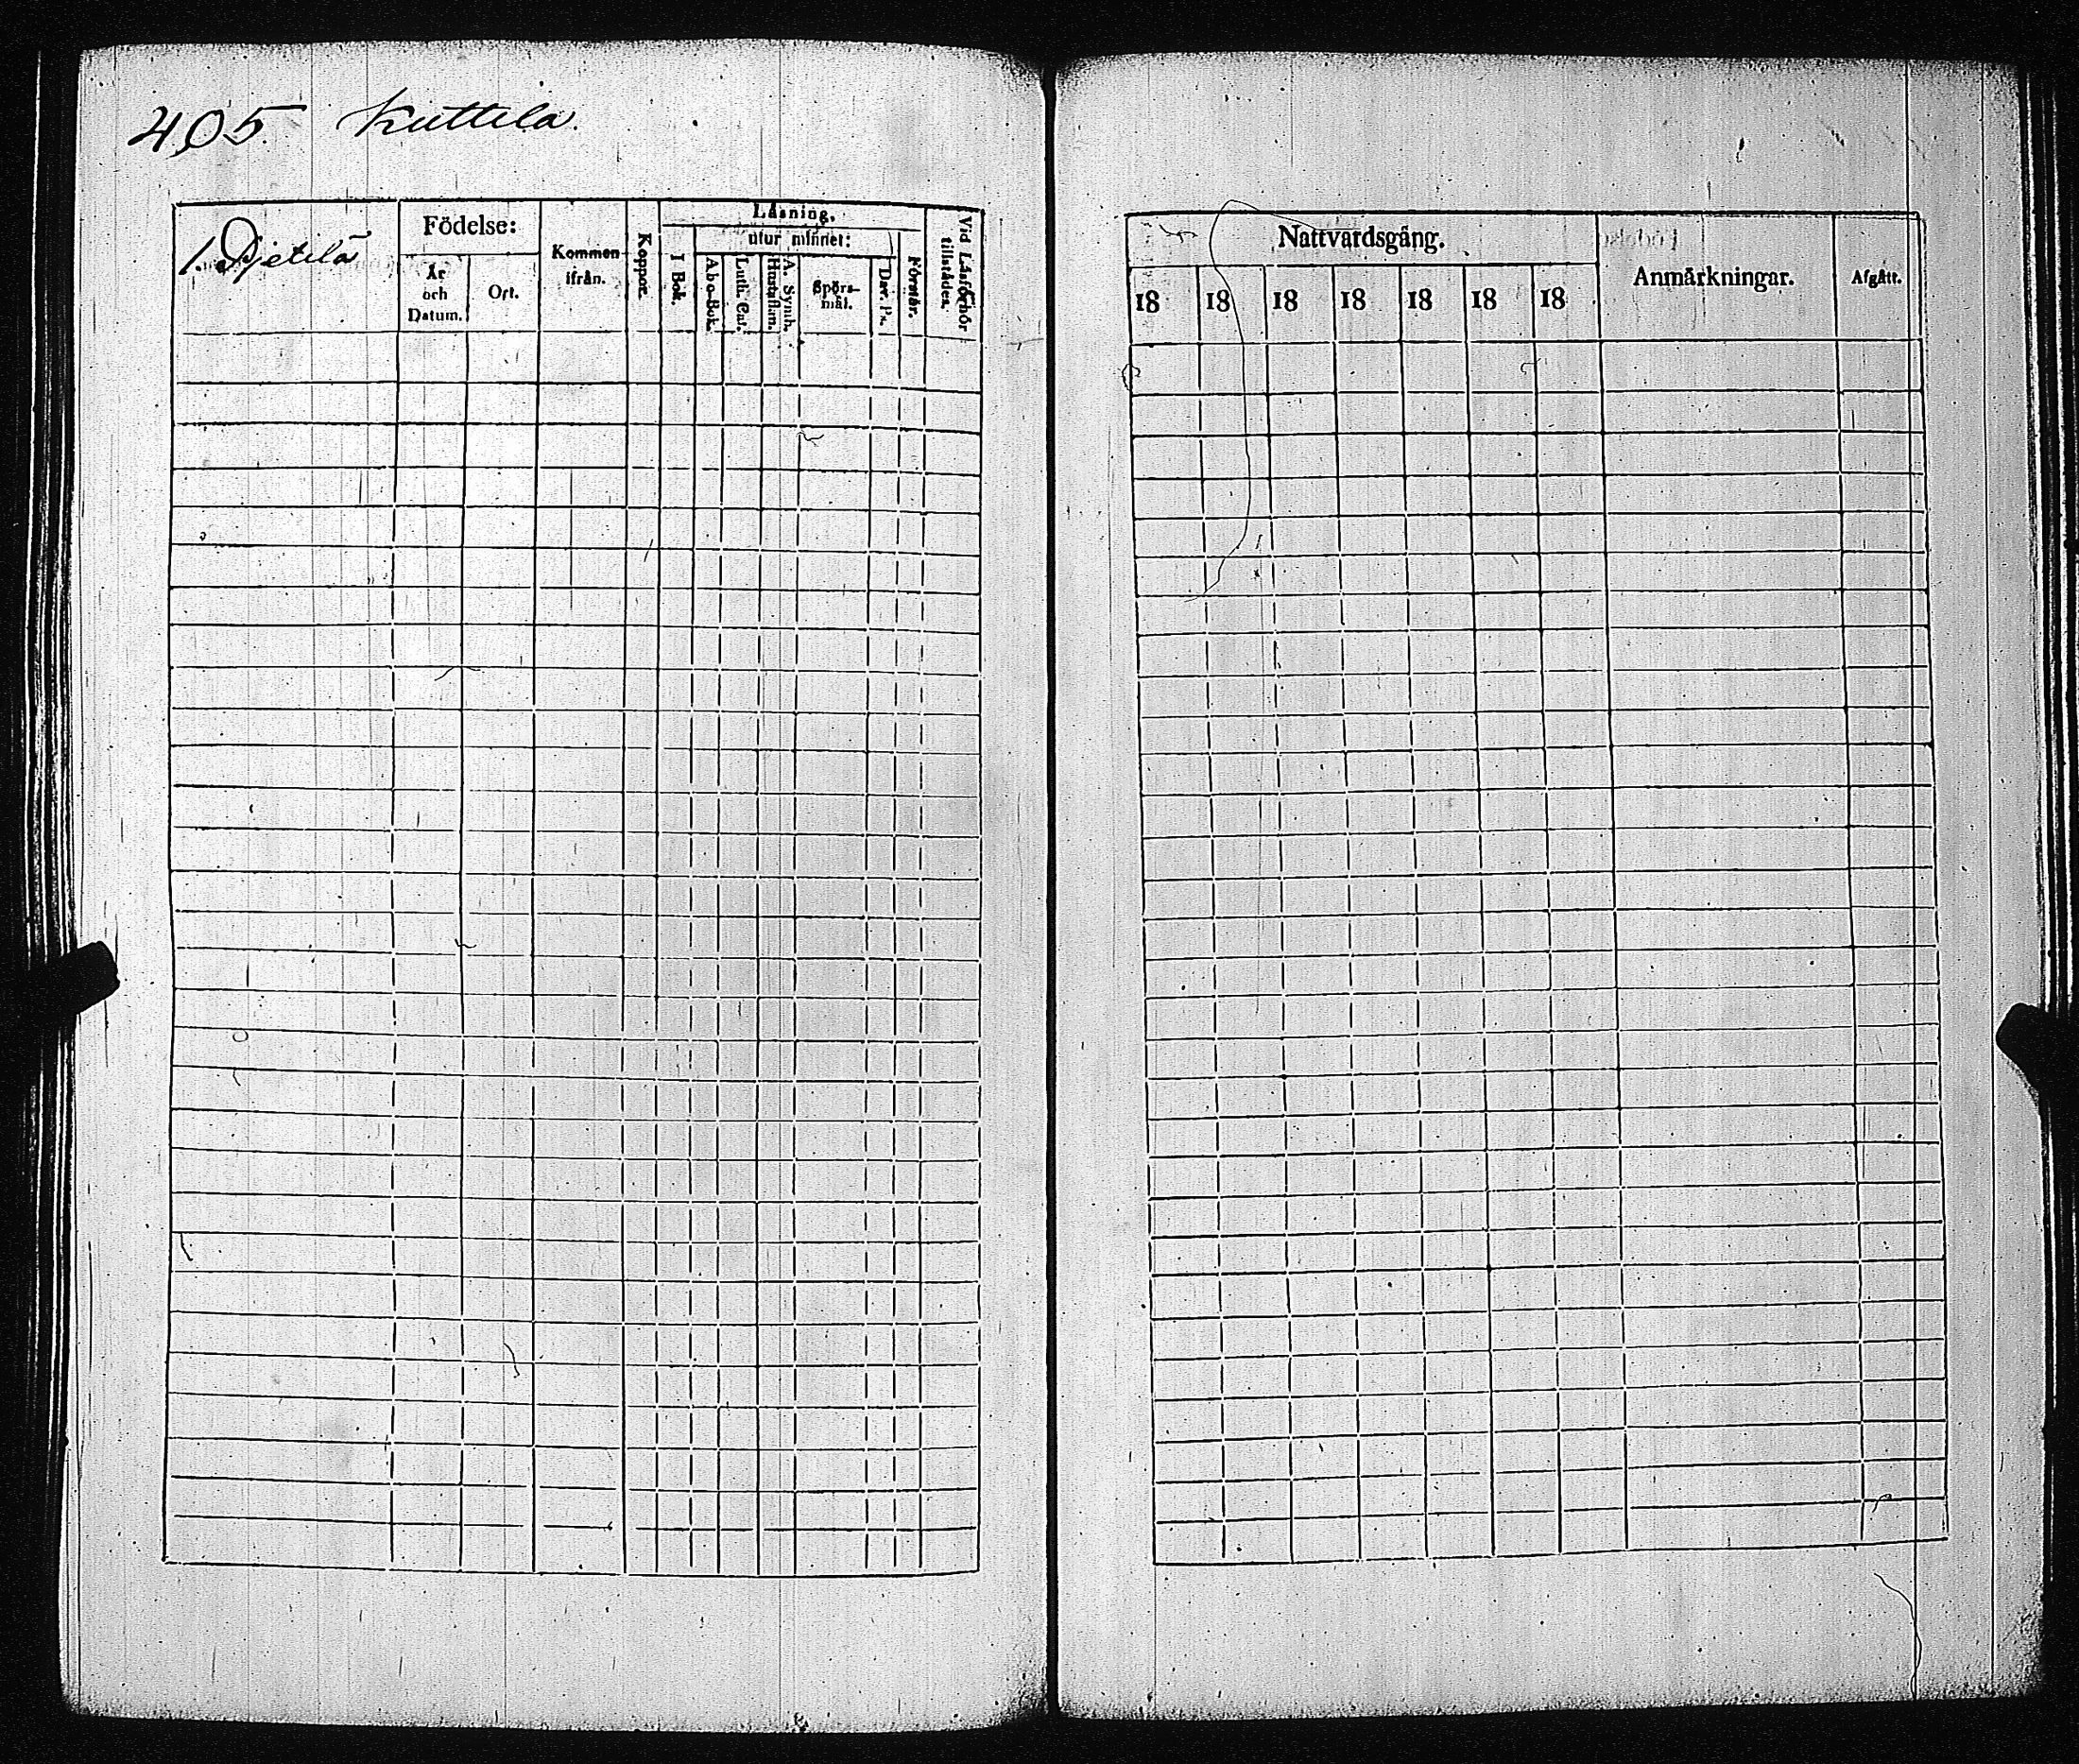 405. Kuttila.
1. Pjetilä
Födelse:
År
och
Datum.
Ort.
Kommen
ifrån.
Koppor.
Läsning.
I Bok.
utur minnet:
Abc-Bok.
Luth. Cat.
Hustaflan.
A. Symb.
Spörs-
mål.
Dav. Ps.
Förstår.
Vid Läsförhör
tillstädes.
Nattvardsgång.
18 18 18 18 18 18 18
Anmärkningar.
Afgått.